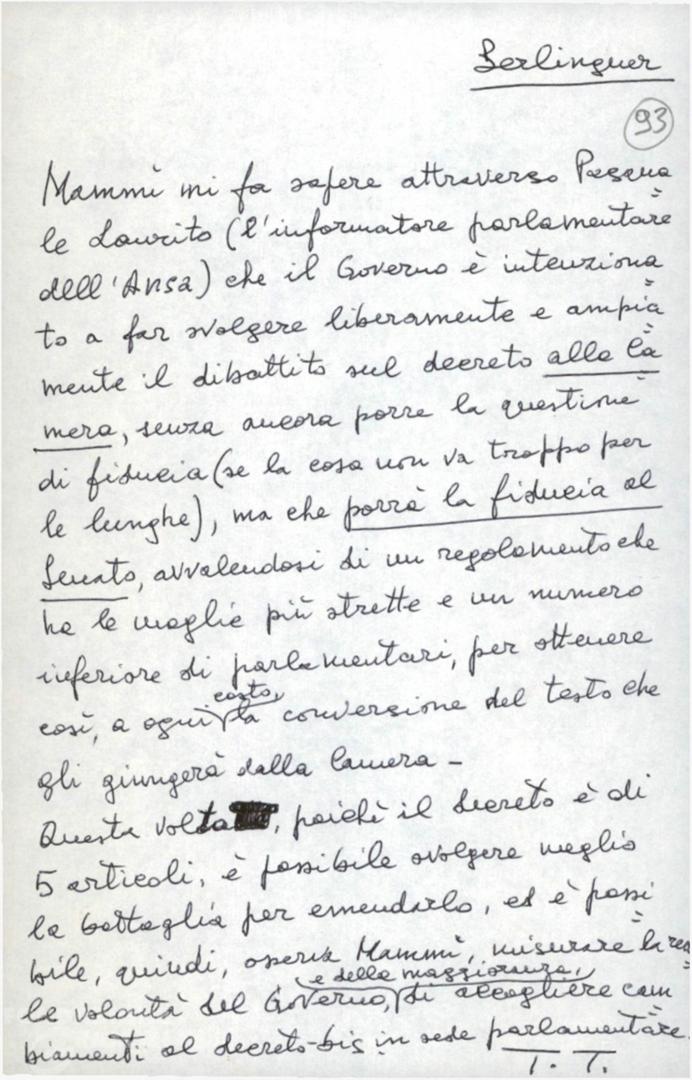 Berlinguer
93
Mammì mi fa sapere attraverso Pasqua=
le Laurito (l'informatore parlamentare
dell'Ansa) che il Governo è intenziona=
to a far svolgere liberamente e ampia=
mente il dibattito sul decreto alla Ca=
mera, senza ancora porre la questione
di fiducia (se la cosa non va troppo per
le lunghe), ma che porrà la fiducia al
Senato, avvalendosi di un regolamento che
ha le maglie più strette e un numero
inferiore di parlamentari, per ottenere
così, a ogni costo, la conversione del testo che
gli giungerà dalla Camera -
Questa volta, poichè il decreto è di
5 articoli, è possibile svolgere meglio
la battaglia per emendarlo, ed è possi=
bile, quindi, osserva Mammì, misurare la rea=
le volontà del Governo, e della maggioranza, di accogliere cam
biamenti al decreto-bis in sede parlamentare.
T. T.